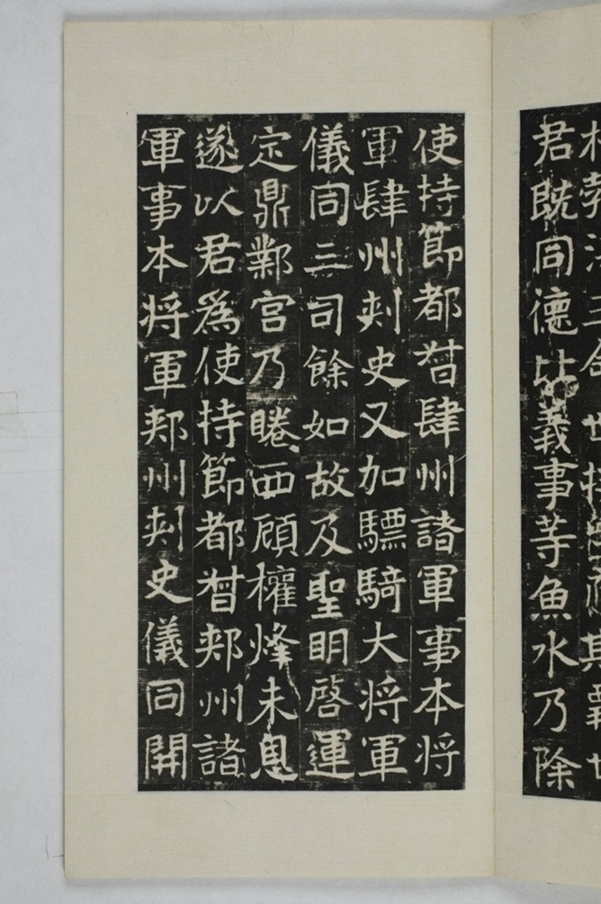 君既同德比義事等魚水乃除
使持節都督肆州諸軍事本將
軍肆州刾史又加驃騎大將軍
儀同三司餘如故及聖明啓運
定鼎鄴宮乃睠西顧權烽未息
遂以君為使持節都督郟州諸
軍事本將軍郟州刾史儀同開